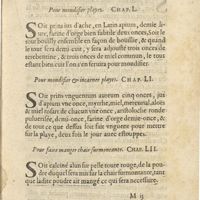 Pour mondifier playes. CHAP. L.
SOit prins ius d'ache, en Latin apium, demie li-
ure, farine d'orge bien subtile deux onces, soit le
tout bouilly ensemble en façon de bouillie, & quand
le tout sera demi cuit, y sera adjousté trois onces de
terebentine, & trois onces de miel commun, & estant
le tout bien cuit l'on s'en servira pour mondifier.
Pour mondifier & incarner playes. CHAP. LI.
SOit prins vnguentum aureum cinq onces, ius
d'apium vne once, myrrhe, miel, mercurial, aloës
de miel rosat de chacun vne once, aristoloche ronde
puluerisée, demi-once, farine d'orge demie-once, &
de tout ce dessus soit fait vnguent pour mettre
sur la playe, deux fois le jour avec estouppes.
Pour faire manger chair surmontante. CHAP. LII.
SOit calciné alun sur pelle toute rouge, de la pou-
dre duquel sera mis sur la chair surmontante, tant
que ladite poudre ait mangé ce qui sera necessaire.
M ij